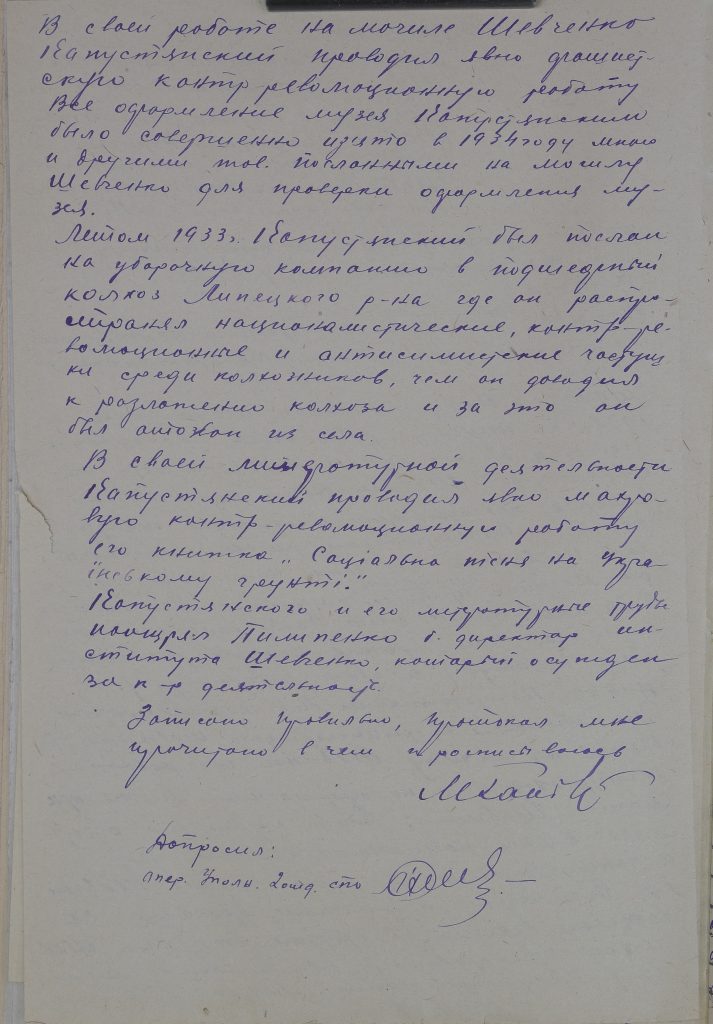 В своей работе на могиле Шевченко
Капустянский проводил явно фашист-
скую контр революционную работу
Все оформление музея Капустянским
было совершенно изято в 1934 году мною
и другими тов. посланными на могилу
Шевченко для проверки оформления му-
зея.
Летом 1933 г. Капустянский был послан
на уборочную компанию в подшефный
колхоз Липецкого р-на где он распро-
странял националистические, контр-ре-
волюционные и антисимитские частуш
ки среди колхозников, чем он доводил
к разложению колхоза и за это он
был отозван из села.
В своей литературной деятельности
Капустянский проводил явно махро-
вую контр-революционную работу
его книжка „Соціальна пісня на Укра-
їнському грунті."
Капустянского и его литературные труды
поощрял Пилипенко б. директор ин-
ститута Шевченко, который осужден
за к-р деятельность.
Записано правильно, протокол мне
прочитано в чем и росписываюсь
Допросил:
опер. Уполн. 2 отд. СПО